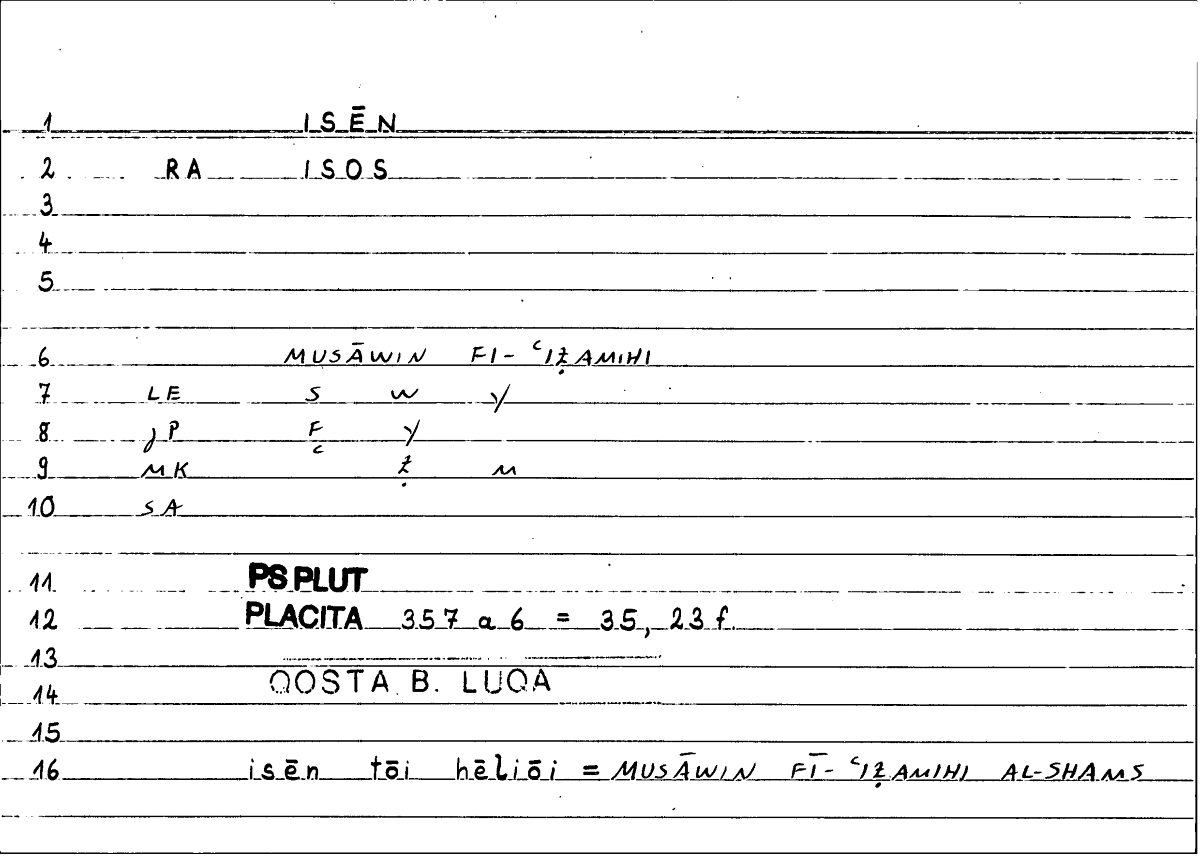 1 ISĒN
2 RA ISOS
3
4
5
6 MUSĀWIN FI- ʿIẒAMIHI
7 LE S W Y
8 JP F Y
9 MK ʿ Ẓ M
10 SA
11 PS PLUT
12 PLACITA 357 a 6 = 35, 23 f.
13
14 QOSTA B. LUQA
15
16 isēn tōi hēliōi = MUSĀWIN FĪ- ʿIẒAMIHI AL-SHAMS